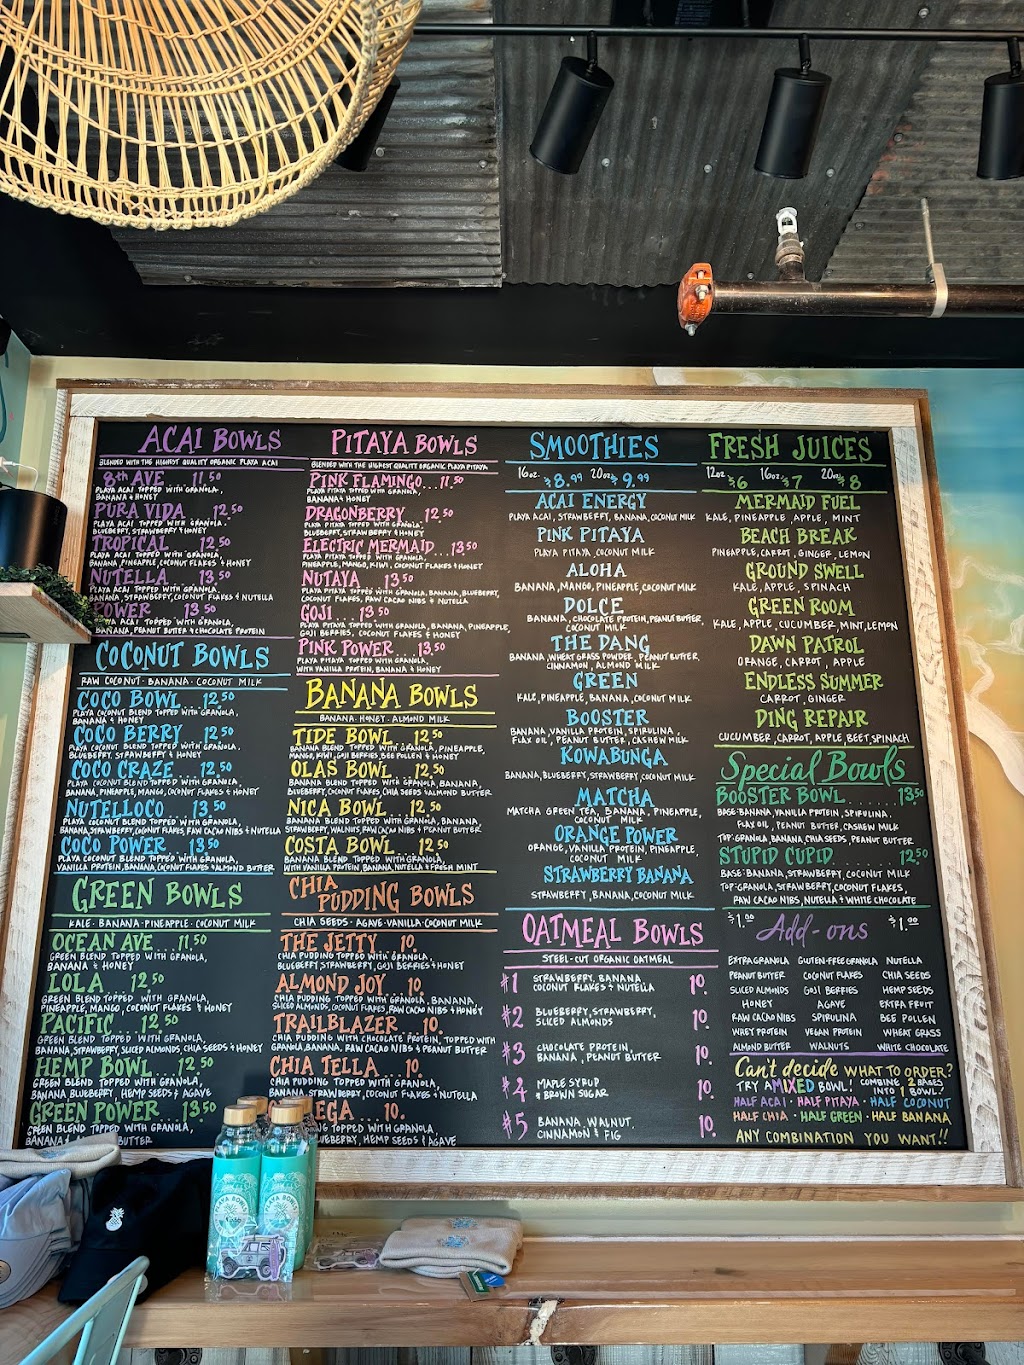 ACAI BOWLS
BLENDED WITH THE HIGHEST QUALITY ORGANIC PLAYA ACAI
8th AVE...11.50
PLAYA ACAI TOPPED WITH GRANOLA,
BANANA & HONEY
PURA VIDA 12.50
PLAYA ACAI TOPPED WITH GRANOLA,
BLUEBERRY, STRAWBERRY & HONEY
TROPICAL 12.50
PLAYA ACAI TOPPED WITH GRANOLA,
BANANA, PINEAPPLE, COCONUT FLAKES & HONEY
NUTELLA 13.50
PLAYA ACAI TOPPED WITH GRANOLA,
BANANA, STRAWBERRY, COCONUT FLAKES & NUTELLA
POWER 13.50
PLAYA ACAI TOPPED WITH GRANOLA,
BANANA, PEANUT BUTTER & CHOCOLATE PROTEIN
COCONUT BOWLS
RAW COCONUT · BANANA · COCONUT MILK
COCO BOWL...12.50
PLAYA COCONUT BLEND TOPPED WITH GRANOLA,
BANANA & HONEY
COCO BERRY...12.50
PLAYA COCONUT BLEND TOPPED WITH GRANOLA,
BLUEBERRY, STRAWBERRY & HONEY
COCO CRAZE...12.50
PLAYA COCONUT BLEND TOPPED WITH GRANOLA,
BANANA, PINEAPPLE, MANGO, COCONUT FLAKES & HONEY
NUTELLOCO...13.50
PLAYA COCONUT BLEND TOPPED WITH GRANOLA,
BANANA, STRAWBERRY, COCONUT FLAKES, RAW CACAO NIBS & NUTELLA
COCO POWER...13.50
PLAYA COCONUT BLEND TOPPED WITH GRANOLA,
VANILLA PROTEIN, BANANA, COCONUT FLAKES & ALMOND BUTTER
GREEN BOWLS
KALE · BANANA · PINEAPPLE · COCONUT MILK
OCEAN AVE...11.50
GREEN BLEND TOPPED WITH GRANOLA,
BANANA & HONEY
LOLA...12.50
GREEN BLEND TOPPED WITH GRANOLA,
PINEAPPLE, MANGO, COCONUT FLAKES & HONEY
PACIFIC...12.50
GREEN BLEND TOPPED WITH GRANOLA,
BANANA, STRAWBERRY, SLICED ALMONDS, CHIA SEEDS & HONEY
HEMP BOWL...12.50
GREEN BLEND TOPPED WITH GRANOLA,
BANANA BLUEBERRY, HEMP SEEDS & AGAVE
GREEN POWER 13.50
GREEN BLEND TOPPED WITH GRANOLA,
BANANA & BUTTER
PITAYA BOWLS
BLENDED WITH THE HIGHEST QUALITY ORGANIC PLAYA PITAYA
PINK FLAMINGO...11.50
PLAYA PITAYA TOPPED WITH GRANOLA,
BANANA & HONEY
DRAGONBERRY 12.50
PLAYA PITAYA TOPPED WITH GRANOLA,
BLUEBERRY, STRAWBERRY & HONEY
ELECTRIC MERMAID...13.50
PLAYA PITAYA TOPPED WITH GRANOLA,
PINEAPPLE, MANGO, KIWI, COCONUT FLAKES & HONEY
NUTAYA...13.50
PLAYA PITAYA TOPPED WITH GRANOLA, BANANA, BLUEBERRY,
COCONUT FLAKES, RAW CACAO NIBS & NUTELLA
GOJI...13.50
PLAYA PITAYA TOPPED WITH GRANOLA, BANANA, PINEAPPLE,
GOJI BERRIES, COCONUT FLAKES & HONEY
PINK POWER...13.50
PLAYA PITAYA TOPPED WITH GRANOLA,
WITH VANILLA PROTEIN, BANANA & HONEY
BANANA BOWLS
BANANA · HONEY · ALMOND MILK
TIDE BOWL...12.50
BANANA BLEND TOPPED WITH GRANOLA, PINEAPPLE,
MANGO, KIWI, GOJI BERRIES, BEE POLLEN & HONEY
OLAS BOWL...12.50
BANANA BLEND TOPPED WITH GRANOLA, BANANA,
BLUEBERRY, COCONUT FLAKES, CHIA SEEDS & ALMOND BUTTER
NICA BOWL...12.50
BANANA BLEND TOPPED WITH GRANOLA, BANANA,
STRAWBERRY, WALNUTS, RAW CACAO NIBS & PEANUT BUTTER
COSTA BOWL...12.50
BANANA BLEND TOPPED WITH GRANOLA,
WITH VANILLA PROTEIN, BANANA, NUTELLA & FRESH MINT
CHIA PUDDING BOWLS
CHIA SEEDS · AGAVE · VANILLA · COCONUT MILK
THE JETTY...10.
CHIA PUDDING TOPPED WITH GRANOLA,
BLUEBERRY, STRAWBERRY, GOJI BERRIES & HONEY
ALMOND JOY...10.
CHIA PUDDING TOPPED WITH GRANOLA, BANANA,
SLICED ALMONDS, COCONUT FLAKES, RAW CACAO NIBS & HONEY
TRAILBLAZER...10.
CHIA PUDDING WITH CHOCOLATE PROTEIN, TOPPED WITH
GRANOLA, BANANA, RAW CACAO NIBS & PEANUT BUTTER
CHIA TELLA...10.
CHIA PUDDING TOPPED WITH GRANOLA,
BANANA, STRAWBERRY, COCONUT FLAKES & NUTELLA
EGA...10.
TOPPED WITH GRANOLA,
BLUEBERRY, HEMP SEEDS & AGAVE
SMOOTHIES
16oz. $8.99 20oz. $9.99
ACAI ENERGY
PLAYA ACAI, STRAWBERRY, BANANA, COCONUT MILK
PINK PITAYA
PLAYA PITAYA, COCONUT MILK
ALOHA
BANANA, MANGO, PINEAPPLE, COCONUT MILK
DOLCE
BANANA, CHOCOLATE PROTEIN, PEANUT BUTTER,
COCONUT MILK
THE DANG
BANANA, WHEAT GRASS POWDER, PEANUT BUTTER,
CINNAMON, ALMOND MILK
GREEN
KALE, PINEAPPLE, BANANA, COCONUT MILK
BOOSTER
BANANA, VANILLA PROTEIN, SPIRULINA,
FLAX OIL, PEANUT BUTTER, CASHEW MILK
KOWABUNGA
BANANA, BLUEBERRY, STRAWBERRY, COCONUT MILK
MATCHA
MATCHA GREEN TEA, BANANA, PINEAPPLE,
COCONUT MILK
ORANGE POWER
ORANGE, VANILLA PROTEIN, PINEAPPLE,
COCONUT MILK
STRAWBERRY BANANA
STRAWBERRY, BANANA, COCONUT MILK
OATMEAL BOWLS
STEEL-CUT ORGANIC OATMEAL
#1 STRAWBERRY, BANANA COCONUT FLAKES & NUTELLA 10.
#2 BLUEBERRY, STRAWBERRY, SLICED ALMONDS 10.
#3 CHOCOLATE PROTEIN, BANANA, PEANUT BUTTER 10.
#4 MAPLE SYRUP & BROWN SUGAR 10.
#5 BANANA, WALNUT, CINNAMON & FIG 10.
FRESH JUICES
12oz. $6 16oz. $7 20oz. $8
MERMAID FUEL
KALE, PINEAPPLE, APPLE, MINT
BEACH BREAK
PINEAPPLE, CARROT, GINGER, LEMON
GROUND SWELL
KALE, APPLE, SPINACH
GREEN ROOM
KALE, APPLE, CUCUMBER, MINT, LEMON
DAWN PATROL
ORANGE, CARROT, APPLE
ENDLESS SUMMER
CARROT, GINGER
DING REPAIR
CUCUMBER, CARROT, APPLE, BEET, SPINACH
Special Bowls
BOOSTER BOWL......13.50
BASE: BANANA, VANILLA PROTEIN, SPIRULINA,
FLAX OIL, PEANUT BUTTER, CASHEW MILK
TOP: GRANOLA, BANANA, CHIA SEEDS, PEANUT BUTTER
STUPID CUPID......12.50
BASE: BANANA, STRAWBERRY, COCONUT MILK
TOP: GRANOLA, STRAWBERRY, COCONUT FLAKES,
RAW CACAO NIBS, NUTELLA & WHITE CHOCOLATE
$1.00 Add-ons $1.00
EXTRA GRANOLA GLUTEN-FREE GRANOLA NUTELLA
PEANUT BUTTER COCONUT FLAKES CHIA SEEDS
SLICED ALMONDS GOJI BERRIES HEMP SEEDS
HONEY AGAVE EXTRA FRUIT
RAW CACAO NIBS SPIRULINA BEE POLLEN
WHEY PROTEIN VEGAN PROTEIN WHEAT GRASS
ALMOND BUTTER WALNUTS WHITE CHOCOLATE
Can't decide WHAT TO ORDER?
TRY A MIXED BOWL! COMBINE 2 BASES INTO 1 BOWL!
HALF ACAI · HALF PITAYA · HALF COCONUT
HALF CHIA · HALF GREEN · HALF BANANA
ANY COMBINATION YOU WANT!!
PLAYA BOWLS